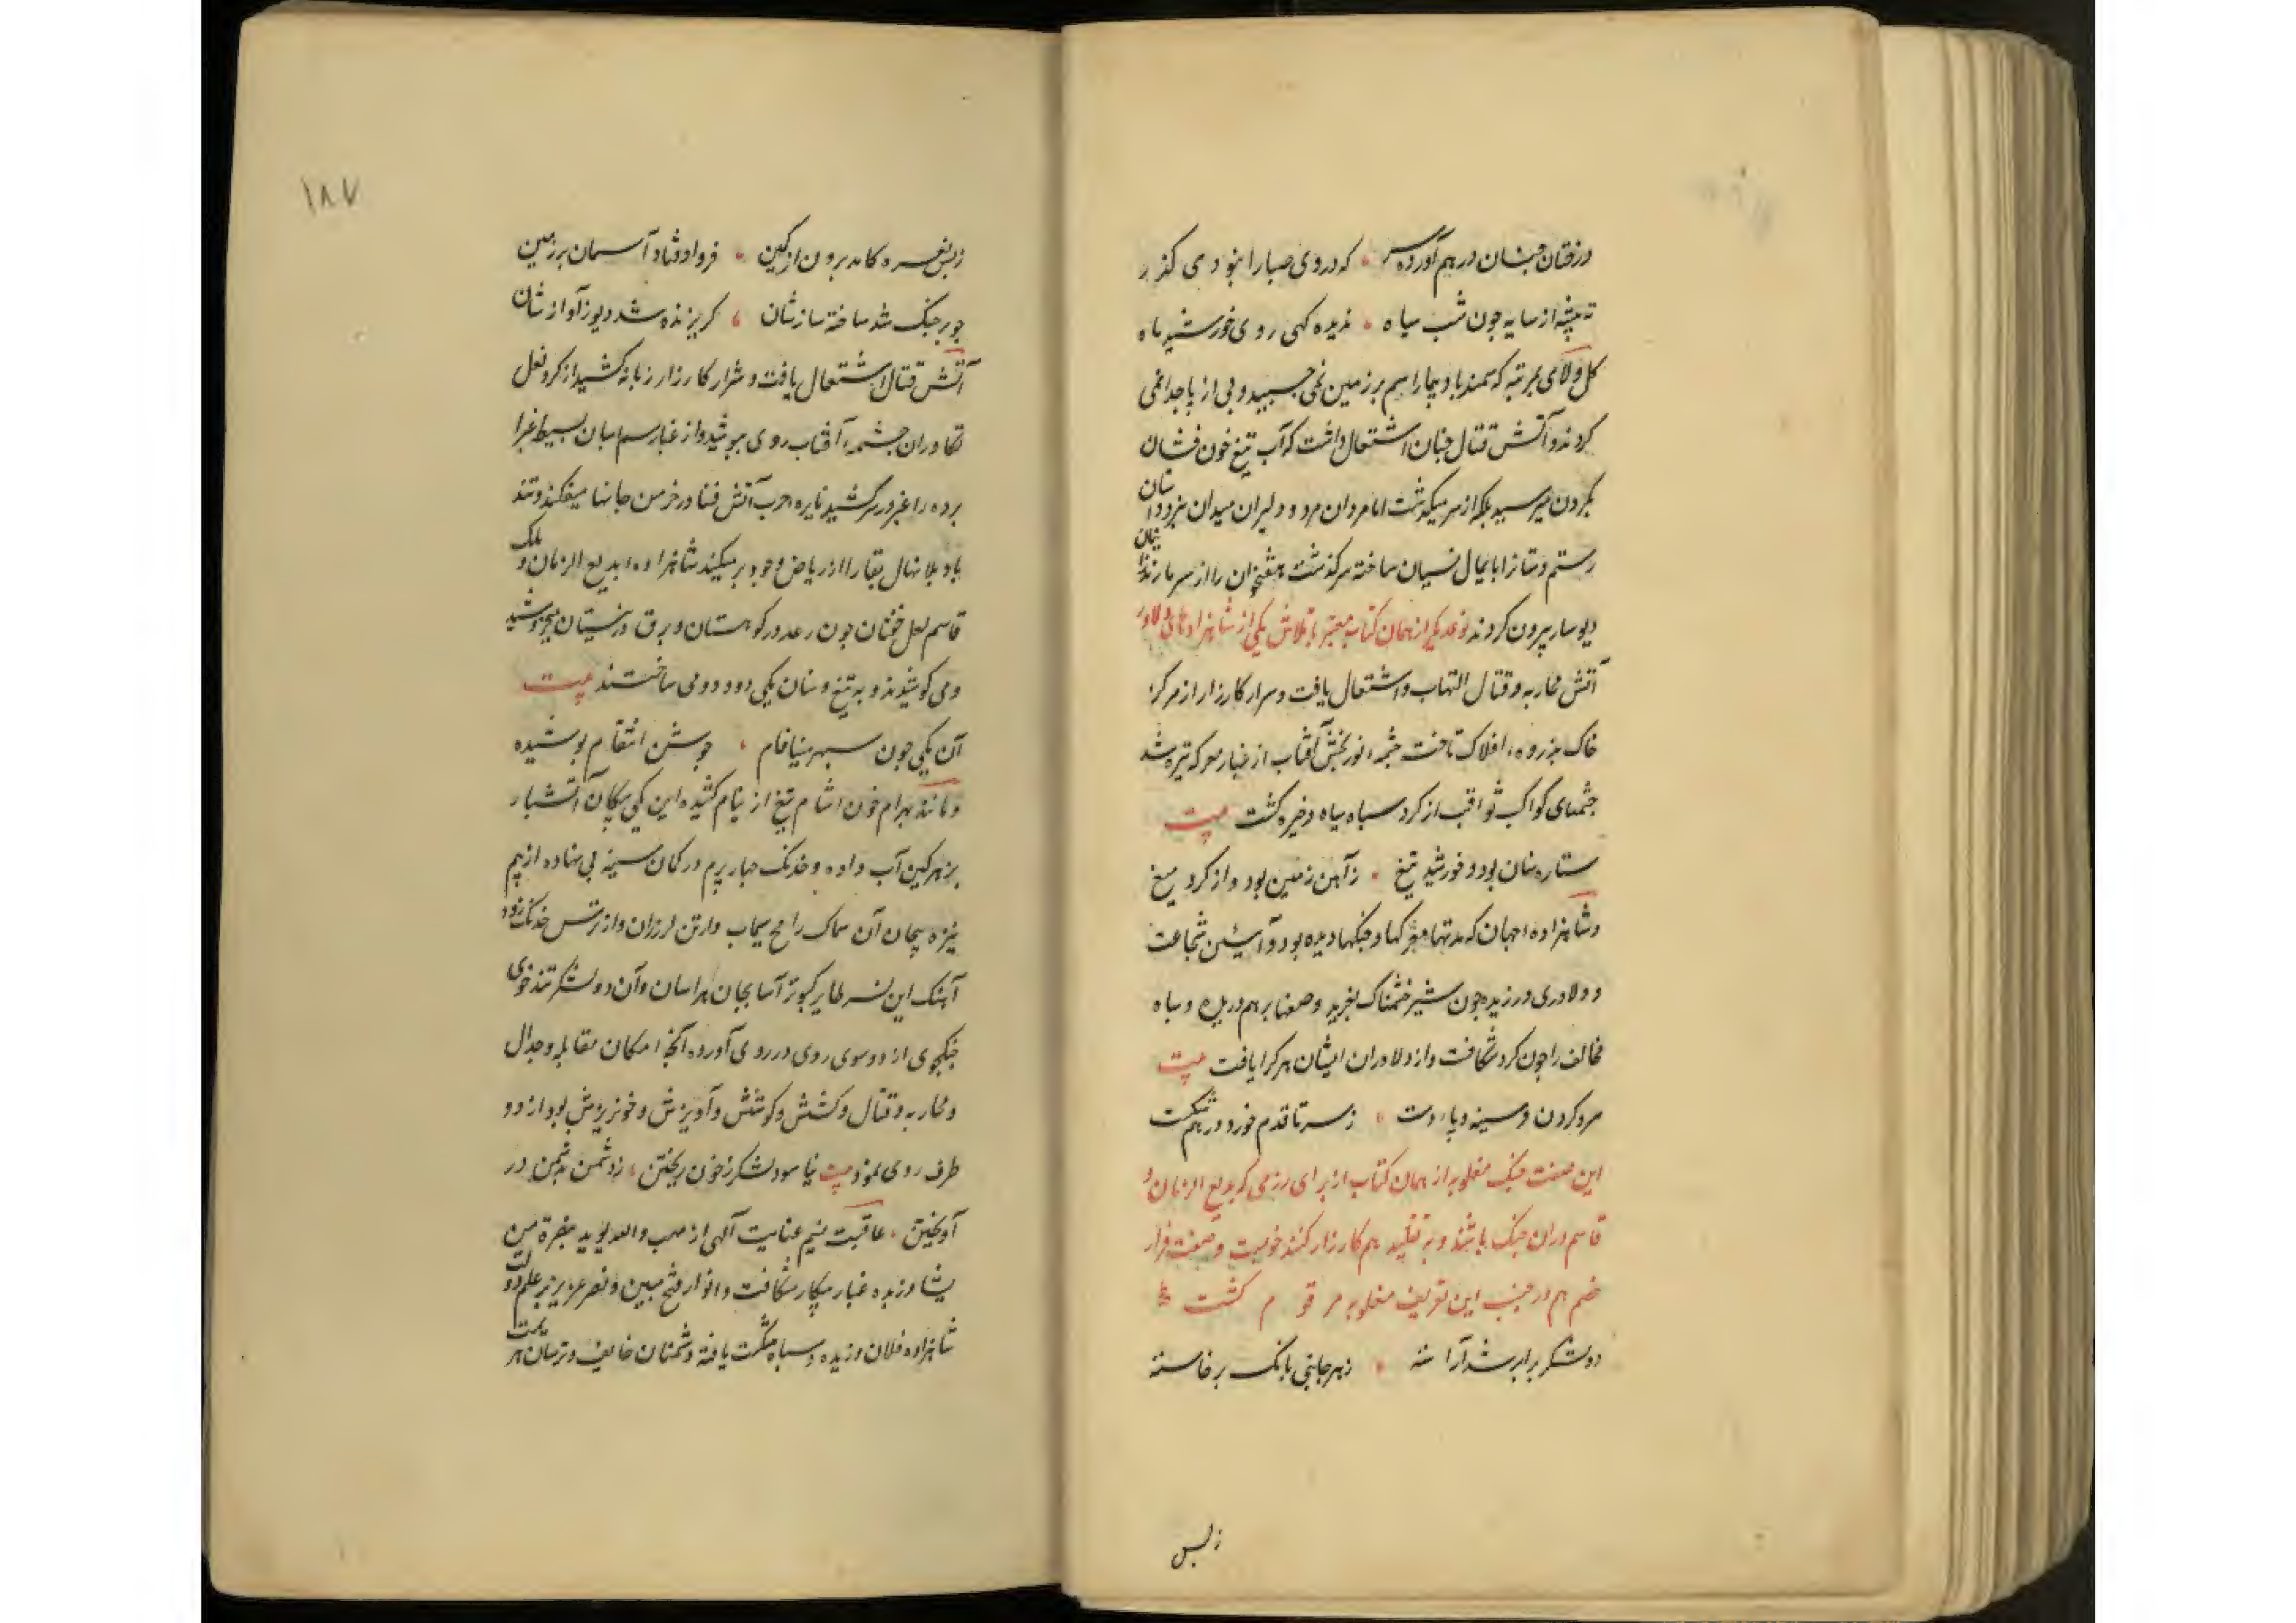 درختان چنان در هم آورده سر که در وی صبا را نبودی گذر
ته بیشه از سایه چون شب سیاه ندیده کهی روی خورشید و ماه
کل و لای بمرتبه که سمند بادپیما را سم بر زمین نمی چسبید و پی از پا جدا نمی
کردند و آتش قتال چنان اشتعال داشت که آب تیغ خون فشان
بکردن میرسید بلکه از سر میکذشت اما مردان مرد و دلیران میدان نبرد داستان
رستم دستانرا پایمال نسیان ساخته سرکذشت هفتخوان را از سر مازندران
دیوسار بیرون کردند نوعدیکر از همان کتاب معتبر با تلاش یکی از شاهزادهای دلاور
آتش محاربه و قتال التهاب و اشتعال یافت و شرار کارزار از مرکز
خاک بذروهٔ افلاک تاخت چشمهٔ نوربخش آفتاب از غبار معرکه تیره شد
چشمهای کواکب ثواقب از کرد سپاه سیاه و خیره کشت بیت
ستاره سنان بود و خورشید تیغ ز آهن زمین بود و از کرد میغ
و شاهزادهٔ جهان که مدتها معرکها و جنکها دیده بود و آئین شجاعت
و دلاوری ورزیده چون شیر خشمناک بغرید و صفها بر هم درید و سپاه
مخالف را چون کرد شکافت و از دلاوران ایشان هر کرا یافت بیت
سر و کردن و سینه و پا و دست ز سر تا قدم خورد در هم شکست
این صفت جنک مغلوبه از همان کتاب از برای رزمی که بدیع الزمان و
قاسم دران جنک باشند و به تقلید هم کارزار کنند خوبست و صفت فرار
خصم هم در جنب این تعریف مغلوبه مرقوم کشت
دو لشکر برابر شد آراسته ز هر جانبی بانک برخاسته
زبس
۱۸۷
زبس نعره کامد برون از کمین فرو اوفتاد آسمان بر زمین
چو بر جنک شد ساخته سازشان کریزنده شد دیو ز آوازشان
آتش قتال اشتعال یافت و شرار کارزار زبانه کشید از کرد نعل
تکاوران چشمهٔ آفتاب روی بپوشید و از غبار سم اسپان بسیط غبرا
پرده را غبر در سر کشید نایرهٔ حرب آتش فنا در خرمن جانها میفکند و تند
باد بلا نهال بقا را از ریاض وجود بر میکند شاهزاده بدیع الزمان و ملک
قاسم لعل خفتان چون رعد در کوهستان و برق در نیستان میخروشید
و می کوشیدند و به تیغ و سنان یکی دو و دو می ساختند بیت
آن یکی چون سپهر مینافام جوشن انتقام پوشیده
و مانند بهرام خون آشام تیغ از نیام کشیده این یکی پیکان آتشبار
بزهر کین آب داده و خدنک چهار پرم در کمان سینه پی نهاده از بیم
نیزه پیچان آن سماک رامح سیماب وار تن لرزان و از ترس خدنک زود
آهنک این نسر طایر کبوتر آسا بجان هراسان و آن دو لشکر تند خوی
جنکجوی از دو سوی روی در روی آورده آنچه امکان مقابله و جدال
و محاربه و قتال و کشش و کوشش و آویزش و خونریزش بود از دو
طرف روی نمود بیت نیاسود لشکر ز خون ریختن ز دشمن بدشمن در
آویختن عاقبت نسیم عنایت آلهی از مهب والله یؤید بنصره من
یشاء وزیده غبار پیکار شکافت و انوار فتح مبین و نصر عزیز بر علم دولت
شاهزاده فلان وزیده و سپاه شکست یافته دشمنان خایف و ترسان